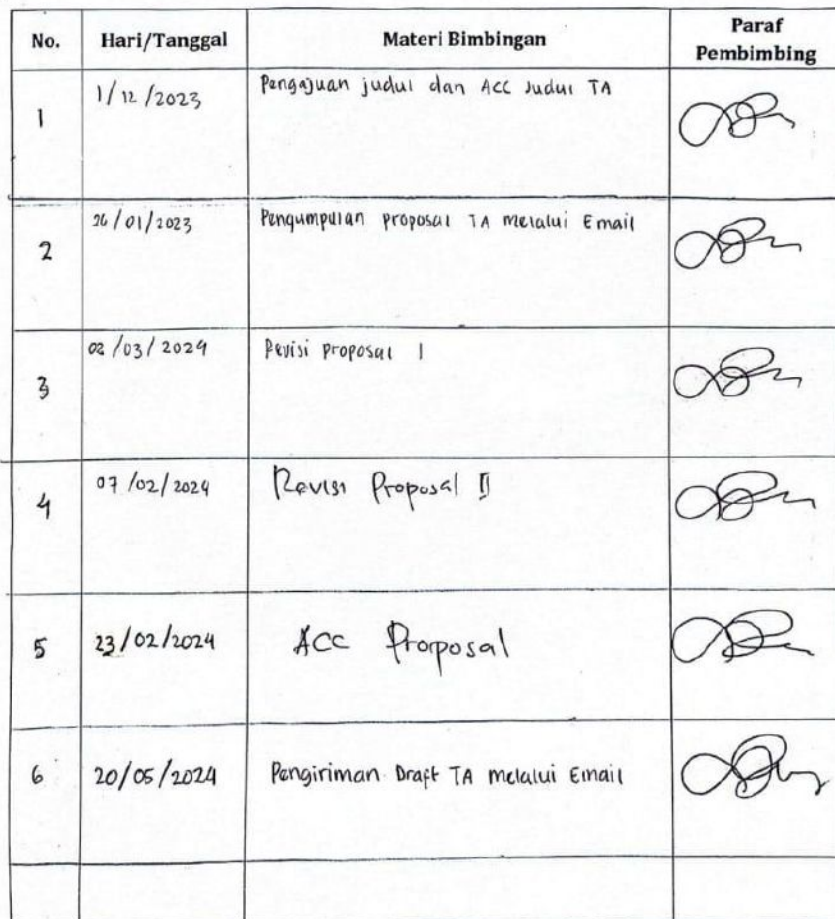 No. Hari/Tanggal Materi Bimbingan Paraf Pembimbing
1 1/12/2023 Pengajuan judul dan ACC Judul TA
2 26/01/2023 Pengumpulan proposal TA melalui Email
3 02/03/2024 Revisi proposal I
4 07/02/2024 Revisi Proposal II
5 23/02/2024 ACC Proposal
6 20/05/2024 Pengiriman Draft TA melalui Email